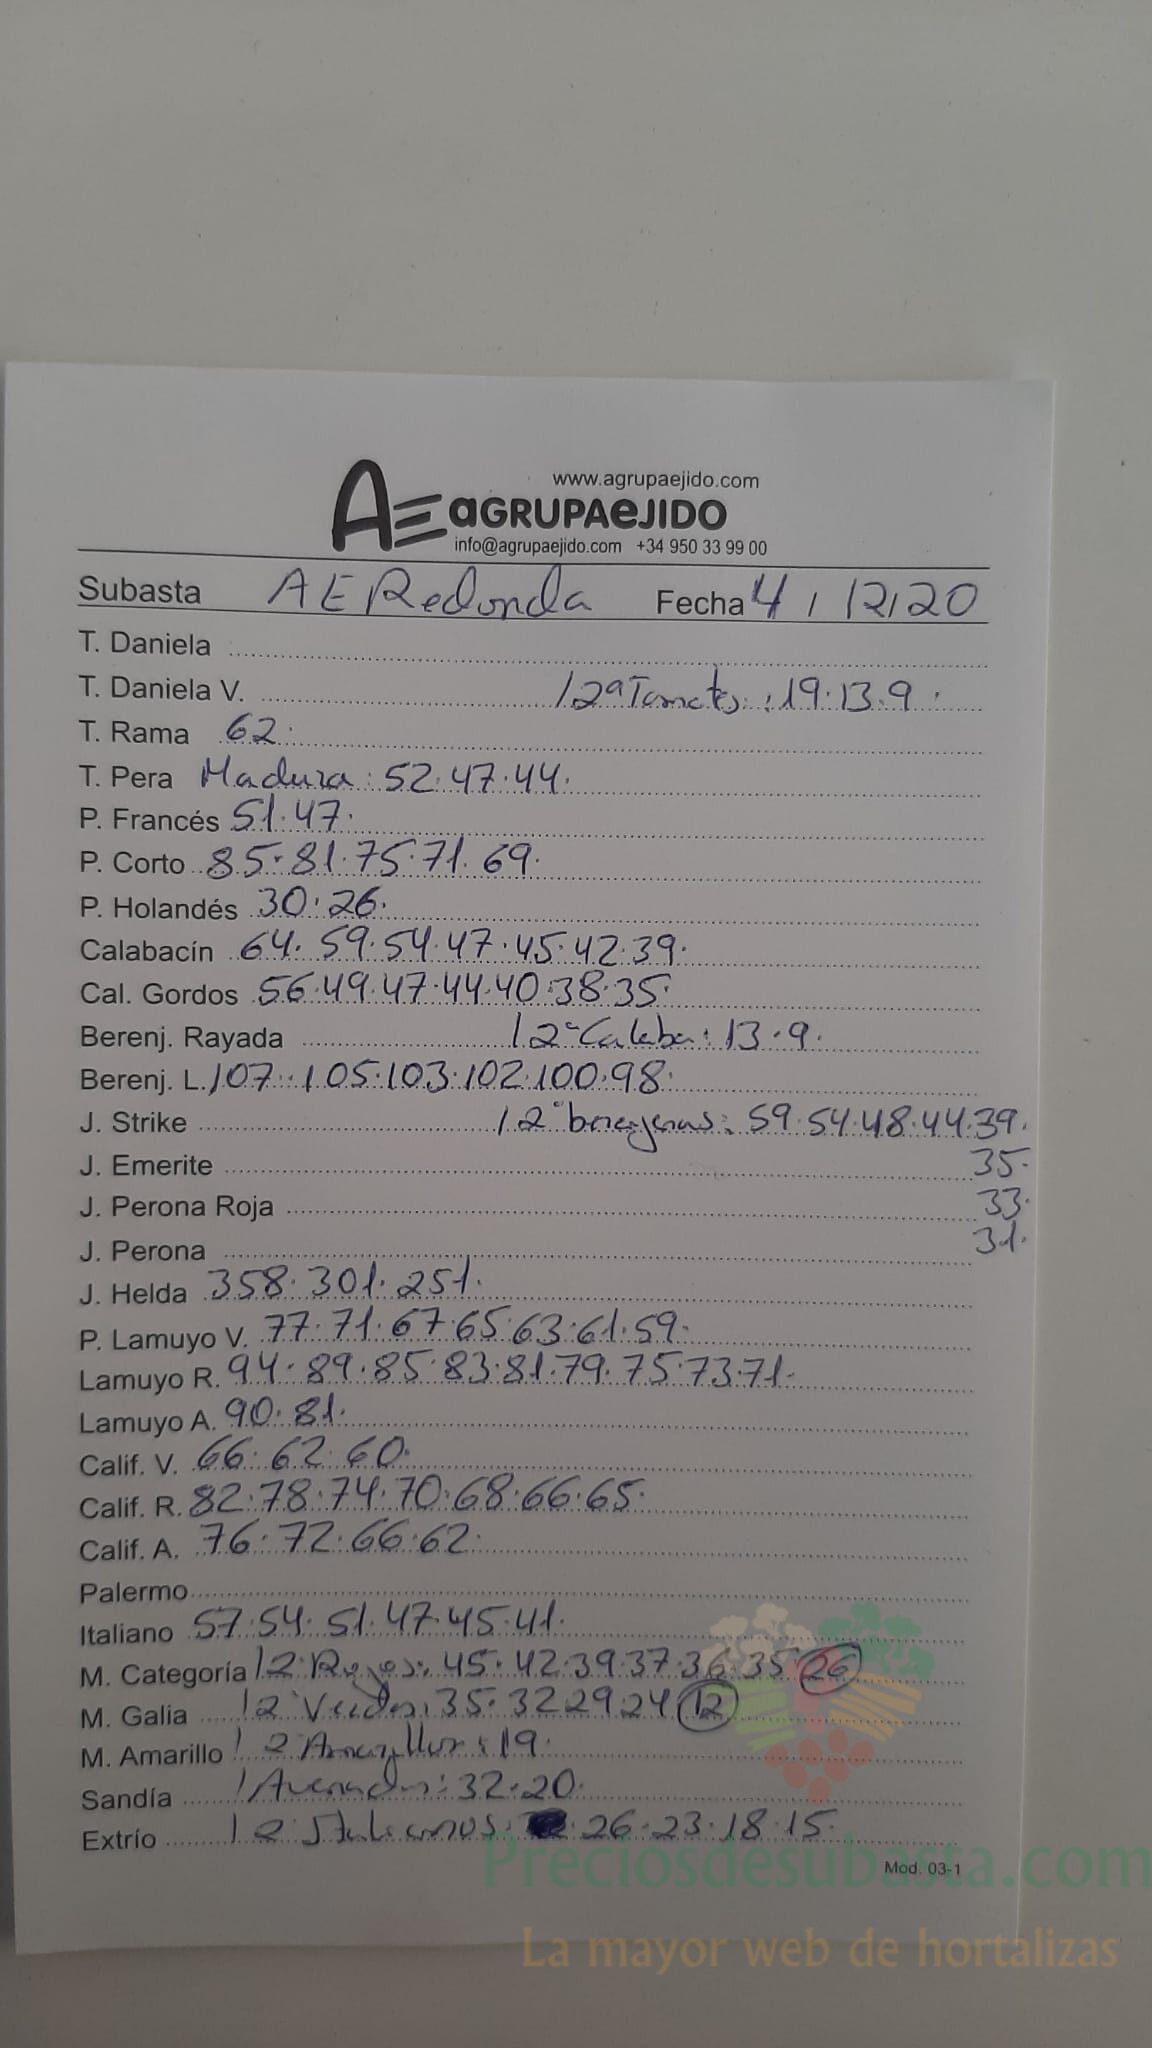 www.agrupaejido.com
AE AGRUPAEJIDO
info@agrupaejido.com +34 950 33 99 00
Subasta AE Redonda Fecha 4 / 12 / 20
T. Daniela
T. Daniela V. / 2ª Tomates: 19.13.9.
T. Rama 62.
T. Pera Madura: 52.47.44.
P. Francés 51.47.
P. Corto 85.81.75.71.69.
P. Holandés 30.26.
Calabacín 64.59.54.47.45.42.39.
Cal. Gordos 56.49.47.44.40.38.35.
Berenj. Rayada / 2ª Calaba: 13.9.
Berenj. L. 107.105.103.102.100.98.
J. Strike / 2ª berenjenas: 59.54.48.44.39.
J. Emerite 35.
J. Perona Roja 33.
J. Perona 31.
J. Helda 358.301.251.
P. Lamuyo V. 77.71.67.65.63.61.59.
Lamuyo R. 94.89.85.83.81.79.75.73.71.
Lamuyo A. 90.81.
Calif. V. 66.62.60.
Calif. R. 82.78.74.70.68.66.65.
Calif. A. 76.72.66.62.
Palermo
Italiano 57.54.51.47.45.41.
M. Categoría / 2ª Rojos: 45.42.39.37.36.35 26
M. Galia / 2ª Verdes: 35.32.29.24 12
M. Amarillo / 2 Amarillos: 19.
Sandía / 32.20.
Extrío / 2 Italianos: 26.23.18.15.
Mod. 03-1
Preciosdesubasta.com
La mayor web de hortalizas